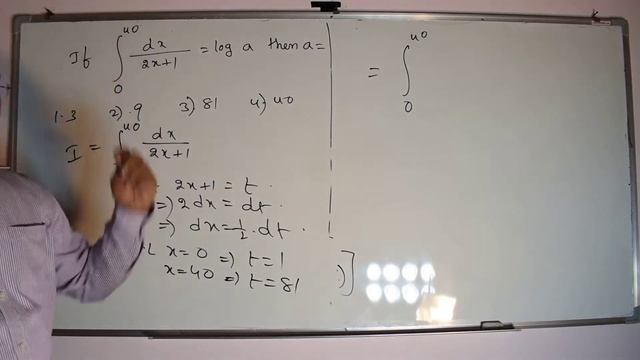 If ∫₀⁴⁰ dx/(2x+1) = log a then a =
1. 3 2) 9 3) 81 4) 40
I = ∫⁴⁰ dx/(2x+1)
2x+1 = t.
=) 2dx = dt.
=) dx = 1/2 . dt.
x=0 =) t=1
x=40 =) t=81
= ∫₀⁴⁰